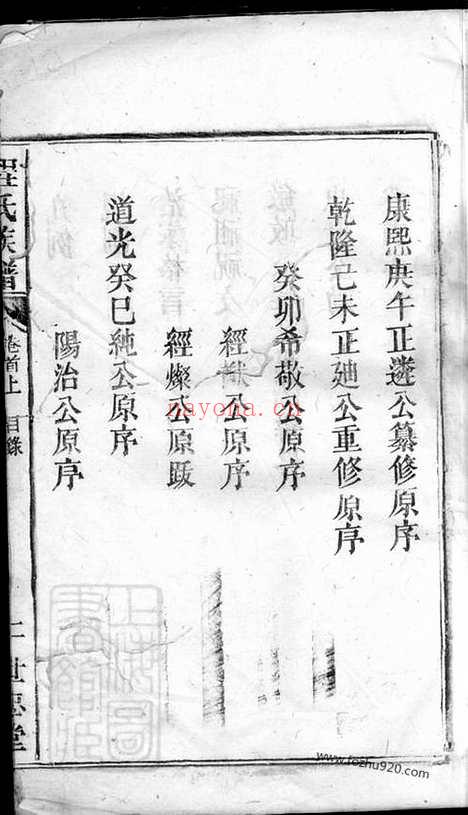 康熙庚午正遴公纂修原序
乾隆己未正廸公重修原序
癸卯希敬公原序
經猷公原序
經燦公原跋
道光癸巳純一公原序
陽治公原序
氏族譜
卷首上 目錄
世思堂
上海圖書館藏
nayona.cn
www.fozhu920.com